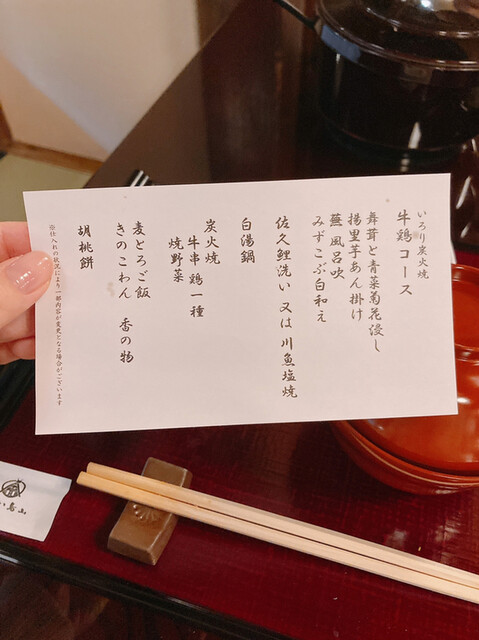 いろり炭火焼
牛鶏コース
舞茸と青菜菊花浸し
揚里芋あん掛け
蕪風呂吹
みずこぶ白和え
佐久鯉洗い又は川魚塩焼
白湯鍋
炭火焼
牛串 鶏一種
焼野菜
麦とろご飯
きのこわん 香の物
胡桃餅
※仕入れの状況により一部内容が変更となる場合がございます